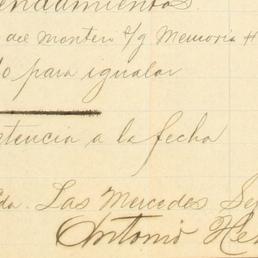 endamientos
del Montero c/g Memoria H
o para igualar
stencia a la fecha
da. Las Mercedes Se
Antonio He